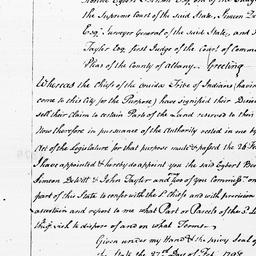 the Supreme Court of the said State, Simeon De
Esq. Surveyor General of the said State, and
Taylor Esq. first Judge of the Court of Common
Pleas of the County of Albany. Greeting
Whereas the Chiefs of the Oneida Tribe of Indians (having
come to this City for the Purpose) have signified their Desire
sell their Claim to certain Part of the Land reserved to their
Now therefore in pursuance of the Authority vested in me by
Act of the Legislature for that purpose made & passed the 26 Fe
I have appointed & hereby do appoint you the said Egbert Ben
Simeon DeWitt & John Taylor and two of you Commissrs on
part of this State to confer with the sd. Chiefs and with precision
ascertain and report to me what Part or Parcels of the sd. L
they wish to dispose of and on what Terms.
Given under my Hand & the privy Seal of
the State the 27th Day of Feb. 1798